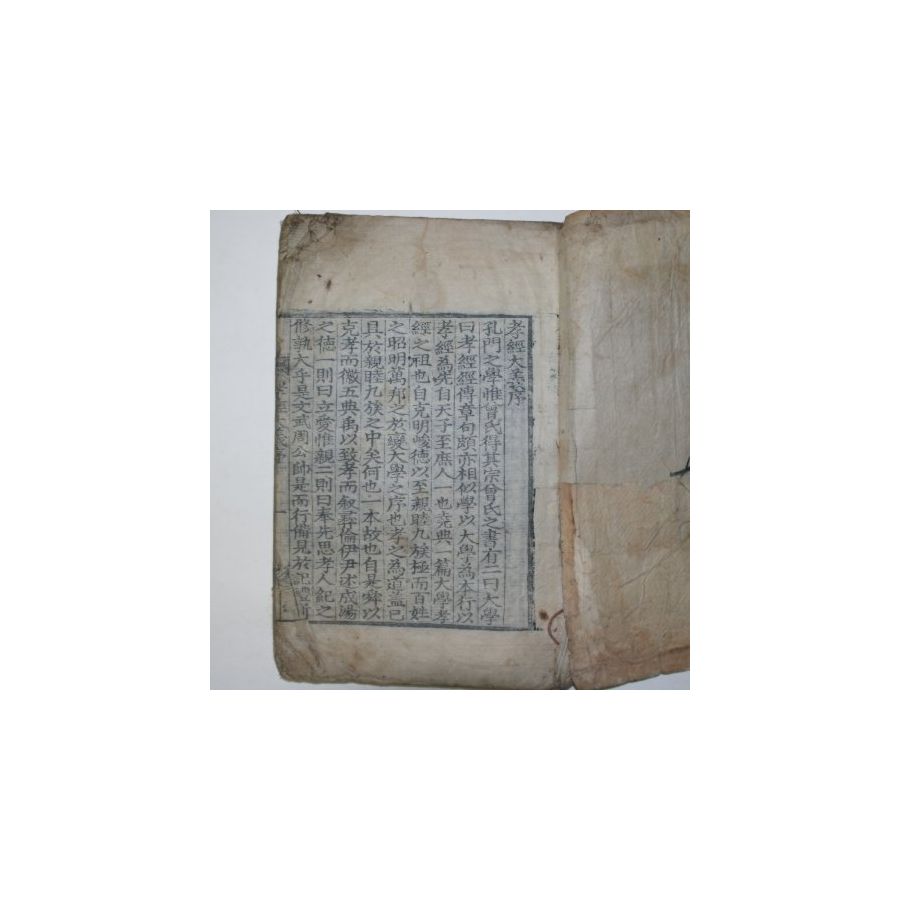 孝經大義序
孔門之學惟曾氏得其宗曾氏之書有二曰大學
曰孝經經傳章句頗亦相似學以大學為本行以
孝經為先自天子至庶人一也堯典一篇大學孝
經之祖也自克明峻德以至親睦九族極而百姓
之昭明萬邦之於變大學之序也孝之為道蓋已
具於親睦九族之中矣何也一本故也自是舜以
克孝而徽五典禹以致孝而叙彝倫伊尹述成湯
之德一則曰立愛惟親二則曰奉先思孝人紀之
修孰大乎是文武周公帥是而行備見於記禮所